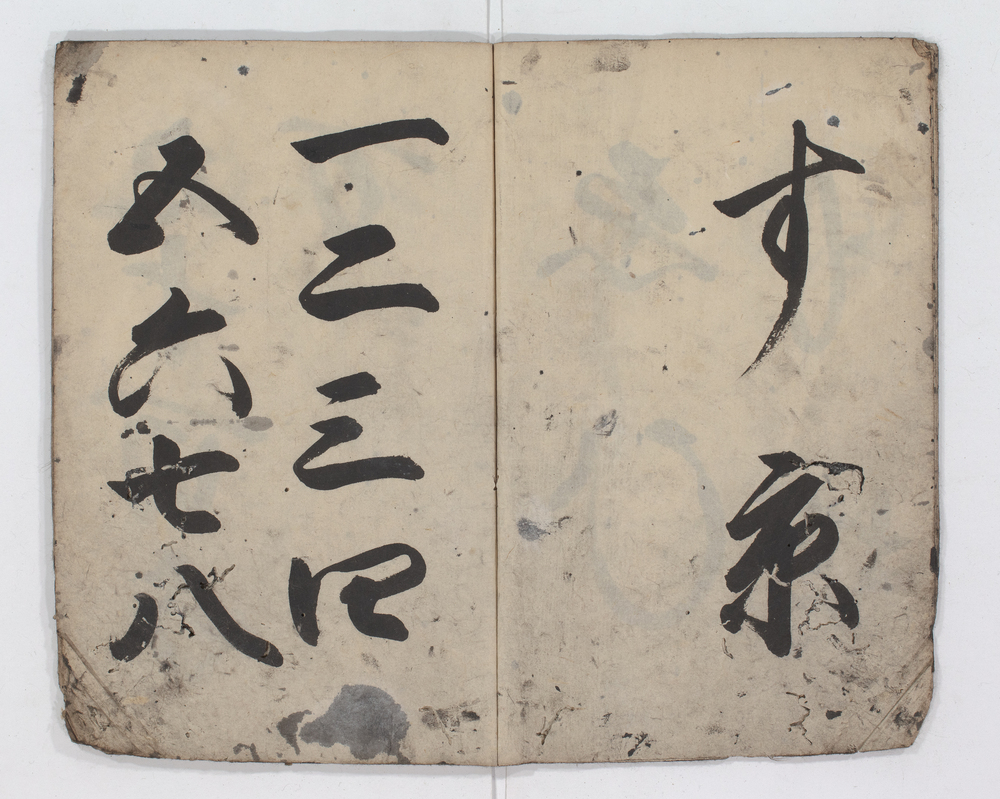 す京
一二三四
五六七八